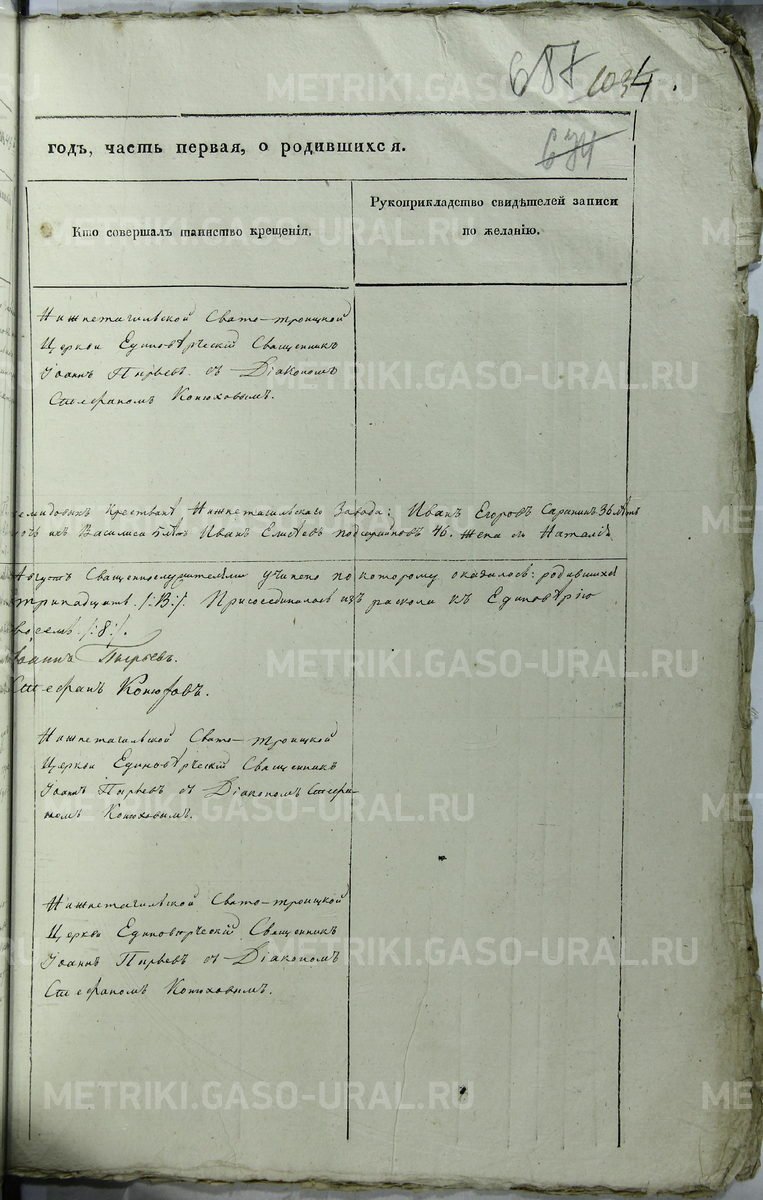 687 1034.
674
годъ, часть первая, о родившихся.
Кто совершалъ таинство крещенія.
Рукоприкладство свидѣтелей записи
по желанію.
Нижнетагильской Свято-троицкой
Церкви Единовѣрческій Священникъ
Іоаннъ Пырьевъ съ Діакономъ
Стефаномъ Конюховымъ.
емидовыхъ крестьянѣ Нижнетагильскаго Завода: Иванъ Егоровъ 36 лѣтъ
очь ихъ Василиса Иванъ Елисѣевъ 46. Жена ев Наталія
Августъ Священнослужителями учинено по которому оказалось: родившихся
тринадцать /:13:/. Присоединилось изъ раскола къ Единовѣрію
восемь /:8:/.
Іоаннъ Пырьевъ.
Стефанъ Конюховъ.
Нижнетагильской Свято-троицкой
Церкви Единовѣрческій Священникъ
Іоаннъ Пырьевъ съ Діакономъ Стефа-
номъ Конюховымъ.
Нижнетагильской Свято-троицкой
Церкви Единовѣрческій Священникъ
Іоаннъ Пырьевъ съ Діакономъ
Стефаномъ Конюховымъ.
METRIKI.GASO-URAL.RU